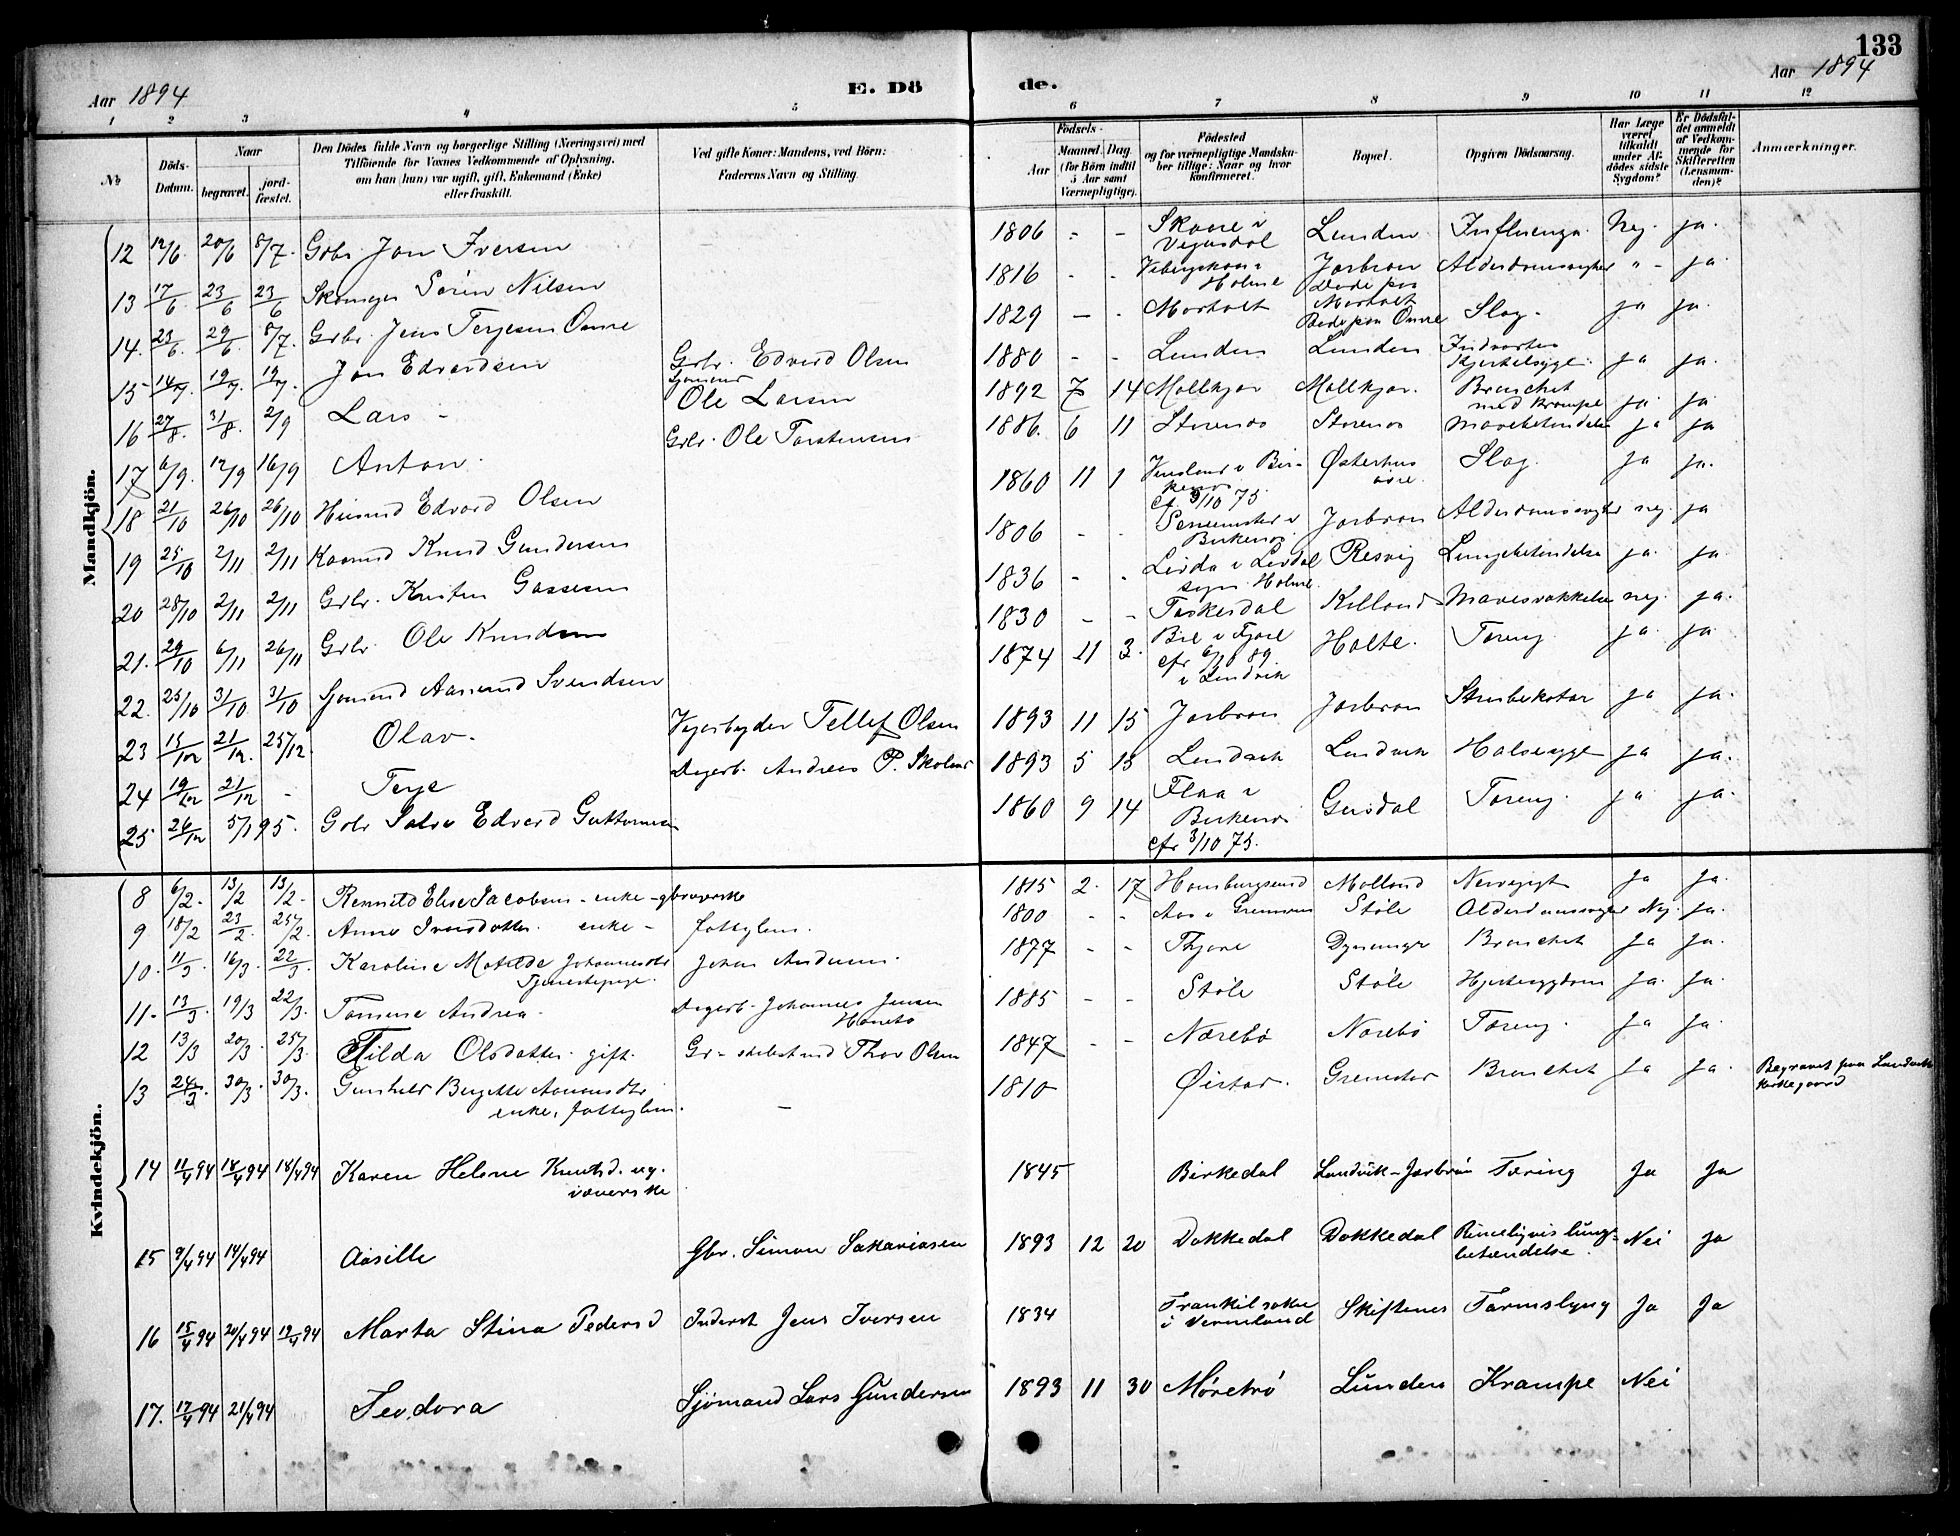 133
Aar 1894 E. Dö de. Aar 1894
1 2 3 4 5 6 7 8 9 10 11 12
№
Döds-Datum.
Naar
begravet.
jord-fæstet.
Den Dödes fulde Navn og borgerlige Stilling (Næringsvei) med
Tilføiende for Voxnes Vedkommende af Oplysning,
om han (hun) var ugift, gift, Enkemand (Enke)
eller fraskilt.
Ved gifte Koner: Mandens, ved Börn:
Faderens Navn og Stilling.
Födsels-
Aar
Maaned. Dag
(for Börn indtil
5 Aar samt
Værnepligtige).
Födested
og for værnepligtige Mandsku-
ber tillige: Naar og hvor
konfirmeret.
Bopæl.
Opgiven Dödsaarsag.
Har Læge
været
tilkaldt
under Af-
dödes sidste
Sygdom?
Er Dödsfal-
det anmeldt
af Vedkom-
mende for
Skifteretten
(Lensman-
den)?
Anmærkninger.
Mandkjön.
12 12/6 20/6 8/7. Grbr Jon Iversen 1806 - - Skaare i Vegusdal Lunden Influenza. Nej. ja.
13 17/6 23/6 23/6 Skomager Sörin Nilsen 1816 - - Holme Jorbron Alderdomssvaghed " - ja
14. 23/6 29/6 8/7. Grbr. Jens Terjesen Omre 1829 - - Morholt Morholt Døde paa Omre Slag. ja ja.
15 14/7. 19/7. 19/7. Jon Edvardsen Grbr. Edvard Olsen 1880 - - Lunden Lunden Indvortes Kjertelsyge. ja ja.
16 27/8. 31/8. 2/9 Lars - Sømand Ole Larsen 1892 7 14 Mollkjær Mollkjær. Bronchit med Krampe ja. ja.
17 6/9. 12/9 16/9 Anton. Grbr. Ole Torstensen 1886. 6 11 Storenes Storenes Mavebetændelse ja ja
18 21/10 26/10 26/10 Huusmd Edvard Olsen 1860 11 1 Birkenes cf 3/10 75. Østerhus øvre. Slag. ja ja.
19 25/10 2/11 2/11 Kaarmd Knud Gundersen 1806 - - Birkenes. Jorbron Alderdomssvaghed nej. ja
20 28/10 2/11 2/11 Grbr. Kristen Gassesen 1836 - - Holme. Resvig Lungebetændelse ja. ja
21. 29/10 6/11 26/11 Grbr. Ole Knudsen 1830 - - Taskesdal Killand Mavesvækkelse nej. ja.
22. 25/10 3/10 3/10 Sjømand Aanund Svendsen 1874 11 3. Bie i Fjære cfr 6/10 89. i Landvik Holte. Tæring. ja. ja.
23 15/12 21/12. 25/12 Olav. Vejarbejder Tellef Olsen 1893 11 15 Jorbron Jorbron Strubekatar ja ja.
24 19/12 21/12 - Terje Dagarb. Andreas P. Skolmr 1893 5 13 Landvik Landvik Halssyge ja ja.
25 26/12 5/1 95. Grbr Salve Edvard Guttormsen 1860 9 14 Flaa i Birkenes cfr 3/10 75. Geisdal Tæring. ja ja.
Kvindekjön.
8 6/2. 13/2 13/2. Elise Jacobsen - enke - 1815 2. 17 Homburgsund Molland Nervegigt Ja Ja.
9 18/2 23/2. 25/2. Anne Iversdotter. enke - fattiglem. 1800 - - Aas i Gremmen Støle Alderdomssvaghed Nej. Ja.
10. 11/3 16/3. 22/3. Karoline Matilde Johannesdtr Tjenestepige. Johan Andersen. 1877 - - Fjære Dynenge Bronchit Ja Ja.
11. 13/3 19/3 22/3. Tomine Andrea. Dagarb. Johannes Jensen 1885 - - Støle Støle Hjertesygdom Ja. Ja
12 13/3 20/3. 25/3. Tilda Olsdatter. gift. Thor Olsen 1847 - - Nærebø Nærebø Tæring. Ja Ja.
13 24/3 30/3. 30/3. Gunhild Birgitte enke, fattiglem. - 1810 Øistad. Gremstar Bronchit Ja Ja. Begravet paa Landvik Kirkegaard
14 11/4 94 18/4 94 18/4 94 Karen Helene Knutsd. ug. væverske 1845 Birkedal Landvik-Jorbrön Tæring Ja Ja
15 9/4 94 14/4 94 Aasille Gbr. Simon Sakariasen 1893 12 20 Dokkedal Dokkedal Rimeligvis lunge-betændelse. Nei Ja
16 15/4 94 20/4 94 19/4 94 Marta Stina Pedersd Inderst Jens Iversen 1834 i Vermeland Skiftenes Tarmslyng Ja Ja
17. 17/4 94 21/4 94 Teodora Sjömand Lars Gundersen 1893 11 30 Møretrø Lunden Krampe Nei